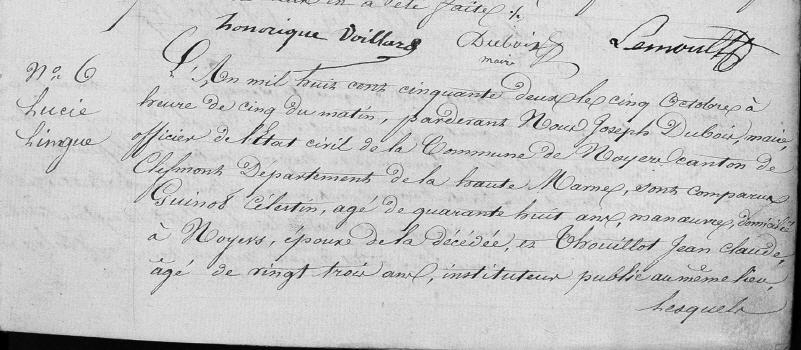 a été faite ./.
honorique Voillard Dubois Lemoult
maire
N° 6
Lucie
Lingue
L'An mil huit cent cinquante deux le cinq Octobre à
heure de cinq du matin, pardevant Nous Joseph Dubois, maire,
officier de l'État civil de la Commune de Noyers canton de
Clefmont Département de la haute Marne, sont comparus
Guinot Célestin, agé de quarante huit ans, manœuvre, domicilié
à Noyers, époux de la décédée, et Thouillot Jean Claude,
âgé de vingt trois ans, instituteur public au même lieu,
Lesquels